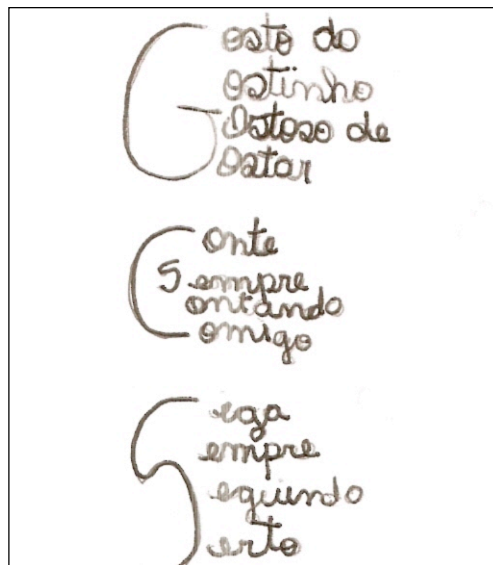 Gosto do
ostinho
ostoso de
ostar
Conte
Sempre
ontando
omigo
Sega
empre
eguindo
erto